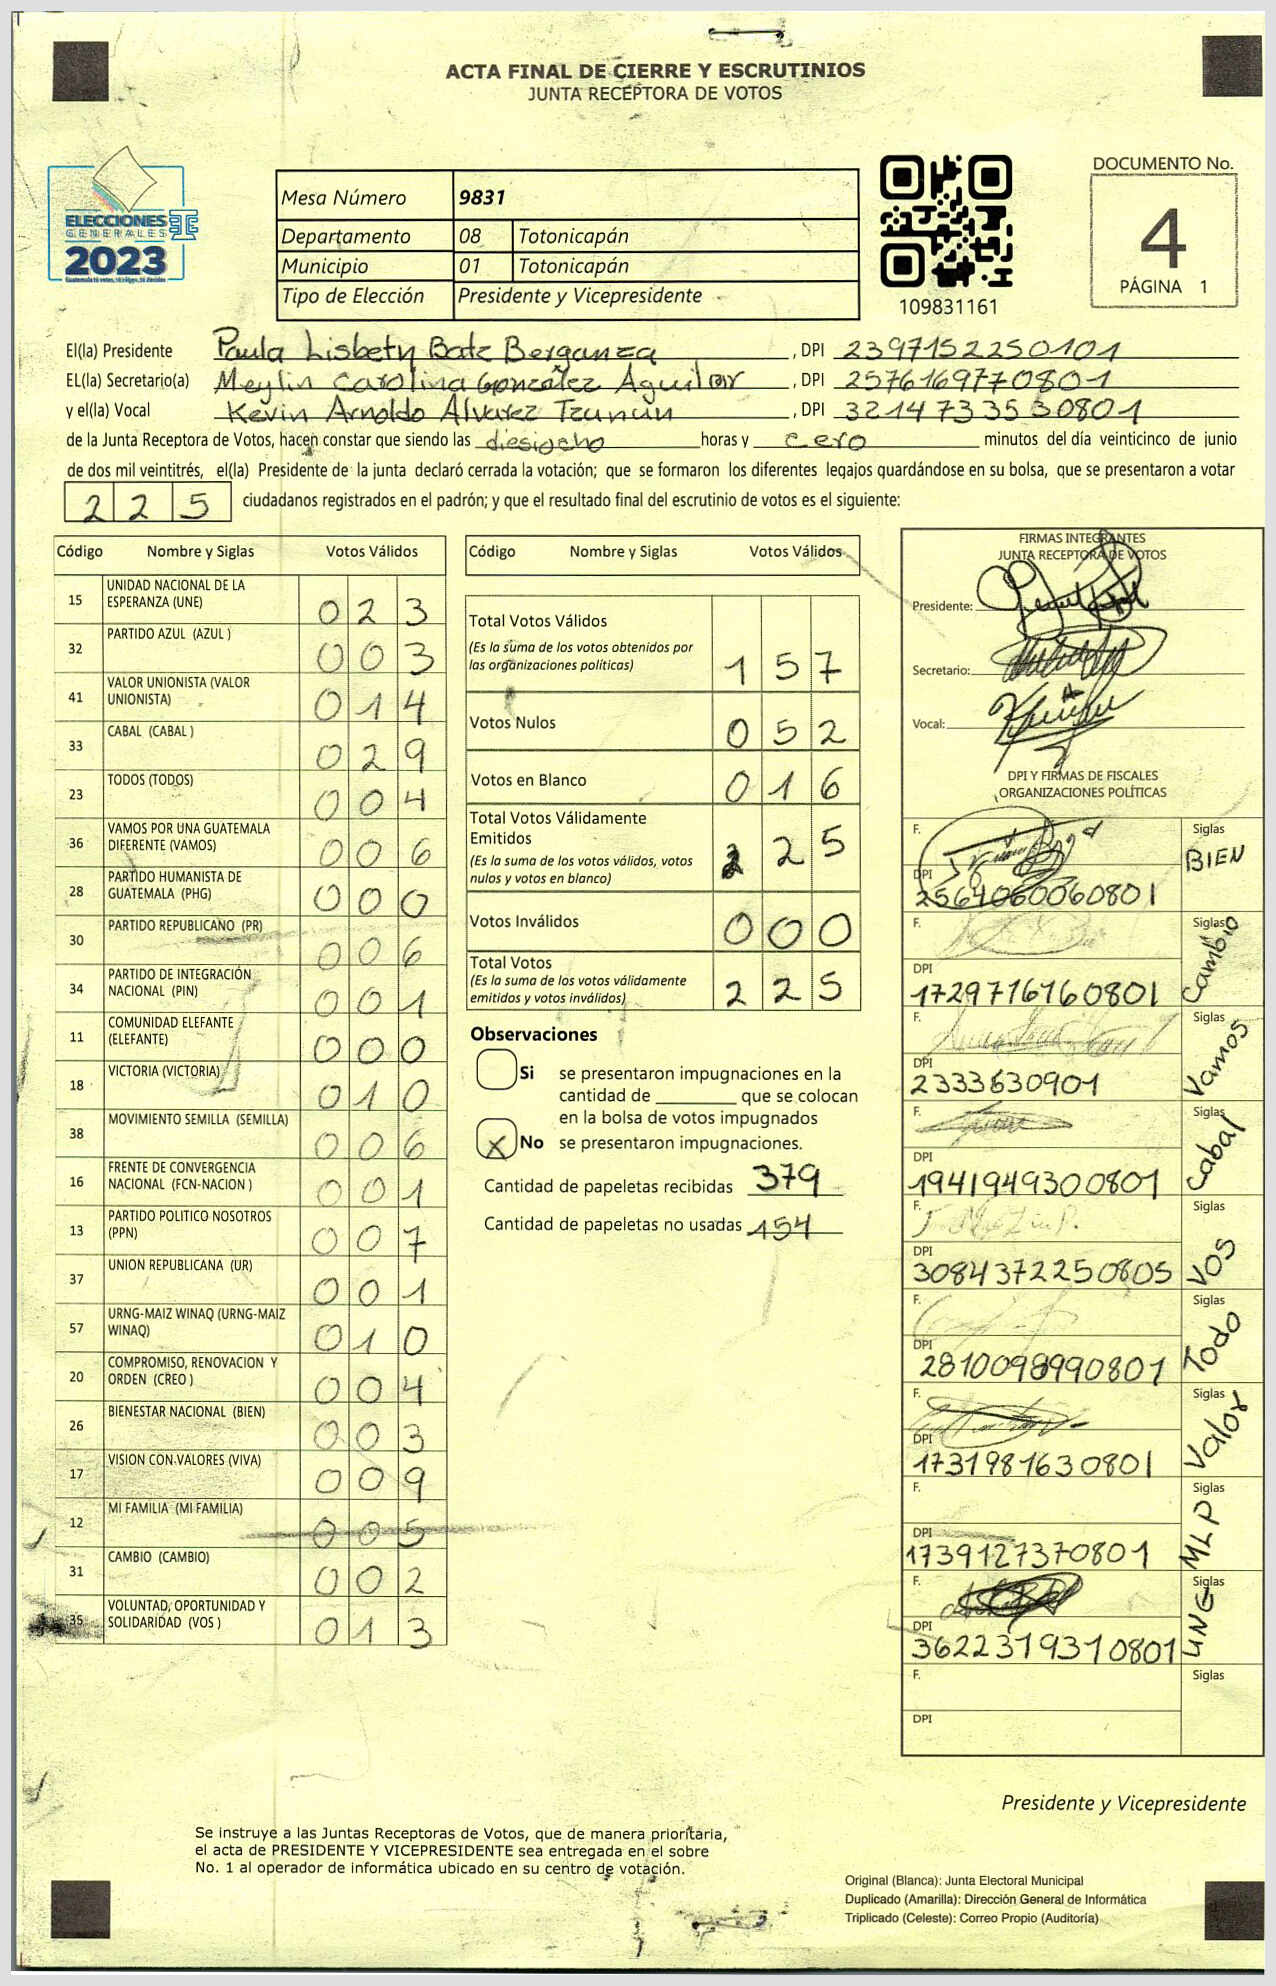 ACTA FINAL DE CIERRE Y ESCRUTINIOS
JUNTA RECEPTORA DE VOTOS
ELECCIONES
GENERALES
2023
Mesa Número 9831
Departamento 08 Totonicapán
Municipio 01 Totonicapán
Tipo de Elección Presidente y Vicepresidente
109831161
DOCUMENTO No.
4
PÁGINA 1
El(la) Presidente Paula Lisbeth Batz Berganza , DPI 2397152250101
EL(la) Secretario(a) Meylin Carolina González Aguilar , DPI 2576169770801
y el(la) Vocal Kevin Arnoldo Alvarez Tzunun , DPI 3214733530801
de la Junta Receptora de Votos, hacen constar que siendo las diesiocho horas y cero minutos del día veinticinco de junio
de dos mil veintitrés, el(la) Presidente de la junta declaró cerrada la votación; que se formaron los diferentes legajos quardándose en su bolsa, que se presentaron a votar
225 ciudadanos registrados en el padrón; y que el resultado final del escrutinio de votos es el siguiente:
Código Nombre y Siglas Votos Válidos
15 UNIDAD NACIONAL DE LA ESPERANZA (UNE) 023
32 PARTIDO AZUL (AZUL ) 003
41 VALOR UNIONISTA (VALOR UNIONISTA) 014
33 CABAL (CABAL ) 029
23 TODOS (TODOS) 004
36 VAMOS POR UNA GUATEMALA DIFERENTE (VAMOS) 006
28 PARTIDO HUMANISTA DE GUATEMALA (PHG) 000
30 PARTIDO REPUBLICANO (PR) 006
34 PARTIDO DE INTEGRACIÓN NACIONAL (PIN) 001
11 COMUNIDAD ELEFANTE (ELEFANTE) 000
18 VICTORIA (VICTORIA) 010
38 MOVIMIENTO SEMILLA (SEMILLA) 006
16 FRENTE DE CONVERGENCIA NACIONAL (FCN-NACION ) 001
13 PARTIDO POLITICO NOSOTROS (PPN) 007
37 UNION REPUBLICANA (UR) 001
57 URNG-MAIZ WINAQ (URNG-MAIZ WINAQ) 010
20 COMPROMISO, RENOVACION Y ORDEN (CREO ) 004
26 BIENESTAR NACIONAL (BIEN) 003
17 VISION CON VALORES (VIVA) 009
12 MI FAMILIA (MI FAMILIA) 005
31 CAMBIO (CAMBIO) 002
35 VOLUNTAD, OPORTUNIDAD Y SOLIDARIDAD (VOS ) 013
Código Nombre y Siglas Votos Válidos
Total Votos Válidos 157
(Es la suma de los votos obtenidos por
las organizaciones políticas)
Votos Nulos 052
Votos en Blanco 016
Total Votos Válidamente
Emitidos 225
(Es la suma de los votos válidos, votos
nulos y votos en blanco)
Votos Inválidos 000
Total Votos 225
(Es la suma de los votos válidamente
emitidos y votos inválidos)
Observaciones
Si se presentaron impugnaciones en la
cantidad de ________ que se colocan
en la bolsa de votos impugnados
X No se presentaron impugnaciones.
Cantidad de papeletas recibidas 379
Cantidad de papeletas no usadas 154
FIRMAS INTEGRANTES
JUNTA RECEPTORA DE VOTOS
Presidente:
Secretario:
Vocal:
DPI Y FIRMAS DE FISCALES
ORGANIZACIONES POLÍTICAS
F. Siglas BIEN
DPI 2564060060801
F. Siglas Cambio
DPI 1729716160801
F. Siglas Vamos
DPI 2333630901
F. Siglas Cabal
DPI 1941949300801
F. Siglas VOS
DPI 3084372250805
F. Siglas Todo
DPI 2810098990801
F. Siglas Valor
DPI 1731981630801
F. Siglas MLP
DPI 1739127370801
F. Siglas UNE
DPI 3622319310801
F. Siglas
DPI
Presidente y Vicepresidente
Se instruye a las Juntas Receptoras de Votos, que de manera prioritaria,
el acta de PRESIDENTE Y VICEPRESIDENTE sea entregada en el sobre
No. 1 al operador de informática ubicado en su centro de votación.
Original (Blanca): Junta Electoral Municipal
Duplicado (Amarilla): Dirección General de Informática
Triplicado (Celeste): Correo Propio (Auditoría)